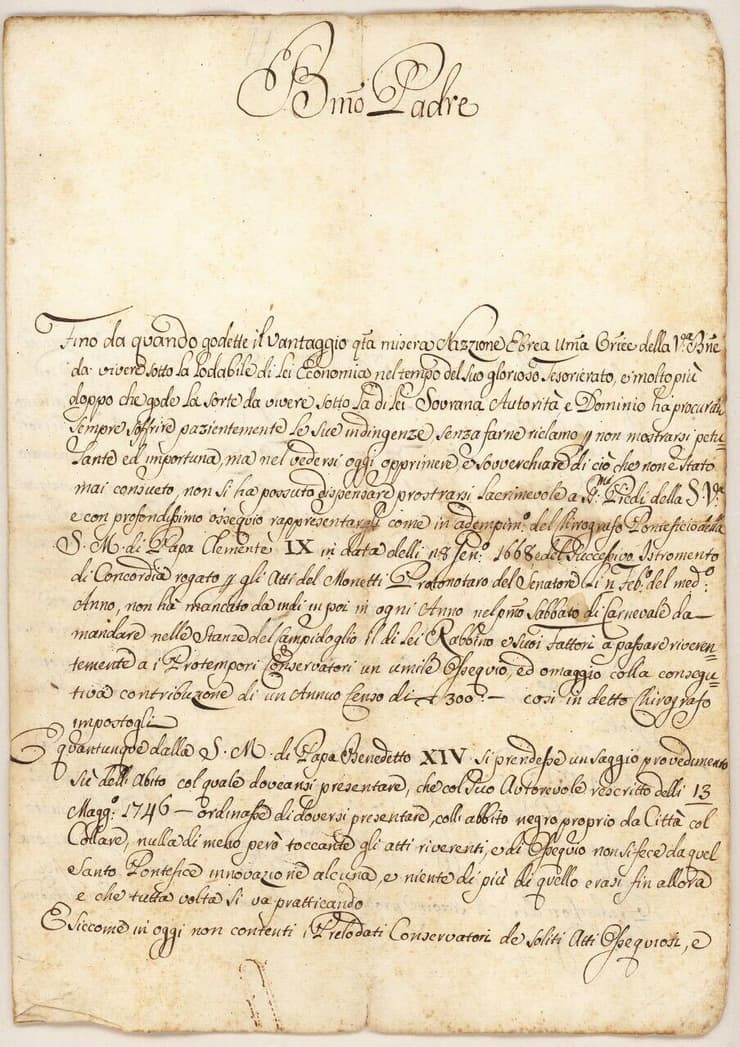 Bmõ Padre
Fino da quando godette il vantaggio qta misera Nazzione Ebrea Uma Orice della Vra Bne
da vivere sotto la Lodabile di Lei Economia nel tempo del suo glorioso Tesorierato, e molto più
doppo che gode la sorte da vivere sotto la di Lei Sovrana Autorità e Dominio ha procurato
sempre soffrire pazientemente le sue indingenze senza farne riclamo p non mostrarsi petu=
lante ed importuna, ma nel vedersi oggi opprimere e sovverchiare di ciò che non è stato
mai consueto, non si ha possuto dispensare prostrarsi lacrimevole a SSmi Piedi della S. Vra
e con profondissimo ossequio rappresentargli come in adempimo del Chirografo Pontificio della
S. M. di Papa Clemente IX in data delli 28 Geno 1668 e del successivo Istromento
di Concordia rogato p gli Atti del Monetti Protonotaro del Senatore li 11 Febo del medo:
Anno, non ha mancato da indi in poi in ogni Anno nel pmo Sabbato di Carnevale da
mandare nelle Stanze del Campidoglio il di lei Rabbino e suoi Fattori a passare riveren=
temente a i Protempori Conservatori un umile Ossequio, ed omaggio colla consegu=
tiva contribuzione di un Annuo Censo di 300:— così in detto Chirografo
impostogli
E quantunque dalla S. M. di Papa Benedetto XIV si prendesse un saggio provedimento
sù dell' Abito col quale doveansi presentare, che col suo Autorevole rescritto delli 13
Maggo: 1746 — ordinasse di doversi presentare, colli abbito negro, proprio da Città col
Collare, nulla di meno però toccante gli atti riverenti, e di Ossequio non si fece da quel
Santo Pontefice innovazione alcuna, e niente di più di quello erasi fin allora
e che tutta volta si va pratticando
E siccome in oggi non contenti i Prelodati Conservatori de soliti Atti Ossequiosi, e